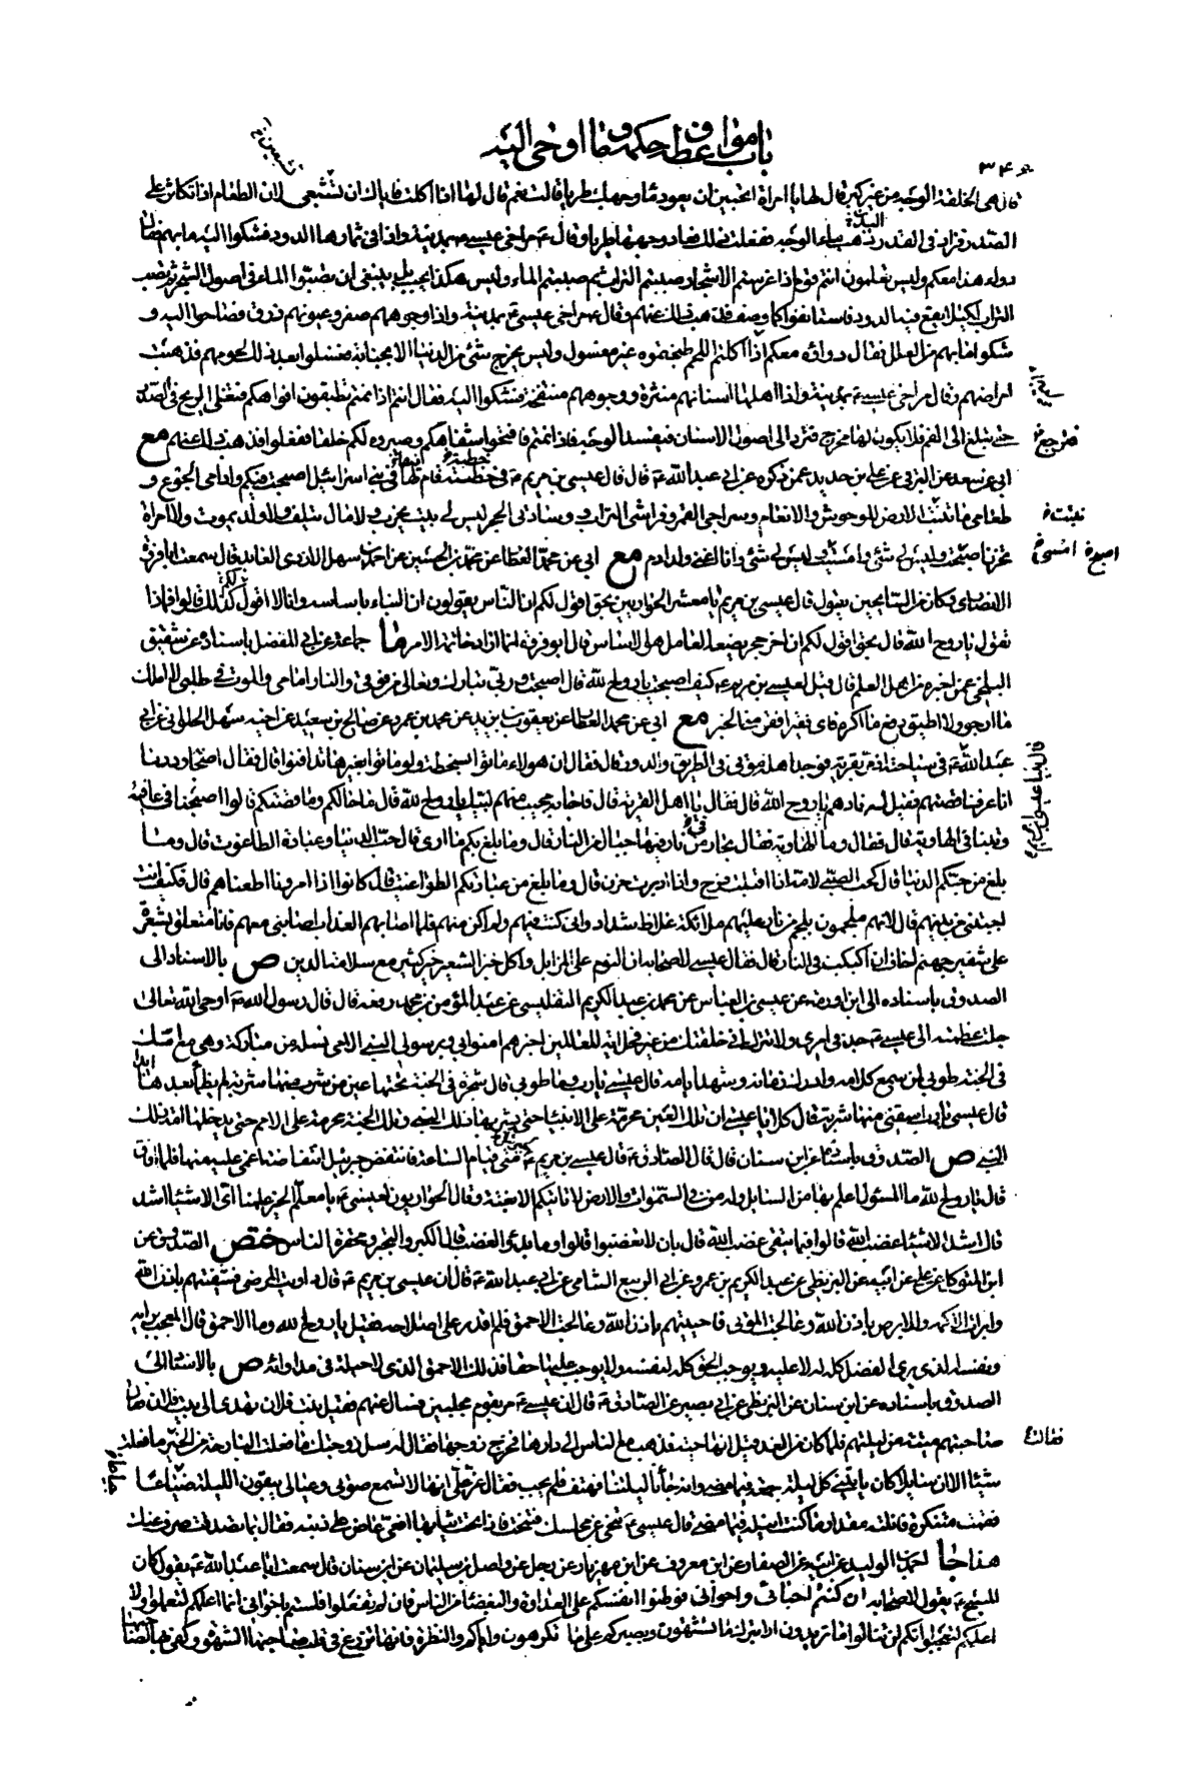 باب مواعظه وحكمه وما اوحى اليه
٣٤٠
قال هي الخلقة الوجه من غير كبر قال لها يا امرأة اتحبين ان يعود ماء وجهك طريا قالت نعم قال لها اذا اكلت فاياك ان تشبعي لان الطعام اذا تكاثر على
الصدر فزاد في القدر ذهب ماء الوجه ففعلت ذلك فعاد وجهها طريا وقال ع مر اخي عيسى ع بمدينة واذا في ثمارها الدود فشكوا اليه ما بهم فقال
دواء هذا معكم وليس تعلمون انتم قوم اذا غرستم الاشجار صببتم التراب ثم صببتم الماء وليس هكذا يجب بل ينبغي ان تصبوا الماء في اصول الشجر ثم تصب
التراب لكيلا يقع فيه الدود فاستانفوا كما وصف فذهب ذلك عنهم وقال ع مر اخي عيسى ع بمدينة واذا وجوههم صفر وعيونهم زرق فصاحوا اليه و
شكوا ما بهم من العلل فقال دواؤه معكم اذا اكلتم اللحم طبختموه غير مغسول وليس يخرج شئ من الدنيا الا بجنابة فغسلوا بعد ذلك لحومهم فذهبت
امراضهم وقال مر اخي عيسى ع بمدينة واذا اهلها اسنانهم منتثرة ووجوههم منتفخة فشكوا اليه فقال انتم اذا نمتم تطبقون افواهكم فتغلى الريح في الصدر
حتى تبلغ الى الفم فلا يكون لها مخرج فترد الى اصول الاسنان فيفسد الوجه فاذا نمتم فافتحوا شفاهكم وصيروه لكم خلقا ففعلوا فذهب ذلك عنهم مع
ابي عن سعد عن البرقي عن علي بن حديد عمن ذكره عن ابي عبد الله ع قال قال عيسى بن مريم ع في خطبته قام بها في بني اسرائيل اصبحت فيكم وادامي الجوع و
طعامي ما تنبت الارض للوحوش والانعام وسراجي القمر وفراشي التراب ووسادتي الحجر ليس لي بيت يخرب ولا مال يتلف ولا ولد يموت ولا امرأة
تحزن اصبحت وليس لي شئ وامسيت وليس لي شئ وانا اغنى ولد ادم مع ابي عن محمد العطار عن محمد بن الحسين عن احمد بن سهل الازدي العابد قال سمعت ابا فروة
الانصاري وكان من السايحين يقول قال عيسى بن مريم يا معشر الحواريين بحق اقول لكم ان الناس يقولون ان البناء باساسه وانا لا اقول لكم كذلك قالوا فماذا
تقول يا روح الله قال بحق اقول لكم ان اخر حجر يضعه العامل هو الاساس قال ابو فروة انما اراد خاتمة الامر ما جماعة عن ابي المفضل باسناده عن شقيق
البلخي عمن اخبره من اهل العلم قال قيل لعيسى بن مريم ع كيف اصبحت يا روح الله قال اصبحت وربي تبارك وتعالى من فوقي والنار امامي والموت في طلبي لا املك
ما ارجو ولا اطيق دفع ما اكره فاي فقير افقر مني الخبر مع ابي عن محمد العطار عن يعقوب بن يزيد عن محمد بن عمرو عن صالح بن سعيد عن اخيه سهل الحلواني عن ابي
عبد الله ع في سياحته اذ مر بقرية فوجد اهلها موتى في الطريق والدور قال فقال ان هؤلاء ماتوا بسخطة ولو ماتوا بغيرها تدافنوا قال فقال اصحابه وددنا
انا عرفنا قصتهم فقيل له نادهم يا روح الله قال فقال يا اهل القرية قال فاجابه مجيب منهم لبيك يا روح الله قال ما حالكم وما قصتكم قالوا اصبحنا في عافية
وبتنا في الهاوية قال فقال وما الهاوية فقال بحار من نار فيها جبال من النار قال وما بلغ بكم ما ارى قال حب الدنيا وعبادة الطاغوت قال وما
بلغ من حبكم الدنيا قال كحب الصبي لامه اذا اقبلت فرح واذا ادبرت حزن قال وما بلغ من عبادتكم الطواغيت قال كانوا اذا امرونا اطعناهم قال فكيف انت
اجبتني من بينهم قال لانهم ملجمون بلجم من نار عليهم ملائكة غلاظ شداد واني كنت فيهم ولم اكن منهم فلما اصابهم العذاب اصابني معهم فانا متعلق بشعرة
على شفير جهنم اخاف ان اكبكب في النار قال فقال عيسى لاصحابه ان النوم على المزابل واكل خبز الشعير خير كثير مع سلامة الدين ص بالاسناد الى
الصدوق باسناده الى ابن اورمة عن عيسى بن العباس عن محمد بن عبد الكريم التفليسي عن عبد المؤمن بن محمد رفعه قال قال رسول الله ص اوحى الله تعالى
جلت عظمته الى عيسى ع جد في امري ولا تترك اني خلقتك من غير فحل اية للعالمين اخبرهم امنوا بي وبرسولي النبي الامي نسله من مباركة وهي مع امك
في الجنة طوبى لمن سمع كلامه وادرك زمانه وشهد ايامه قال عيسى يا رب وما طوبى قال شجرة في الجنة تحتها عين من شرب منها شربة لم يظمأ بعدها ابدا
قال عيسى يا رب اسقني منها شربة قال كلا يا عيسى ان تلك العين محرمة على الانبياء حتى يشربها ذلك النبي وتلك الجنة محرمة على الامم حتى يدخلها امة ذلك
النبي ص الصدوق باسناده عن ابن سنان قال قال الصادق ع قال عيسى بن مريم ع لجبرئيل متى قيام الساعة فانتفض جبرئيل انتفاضة اغمي عليه منها فلما افاق
قال يا روح الله ما المسئول اعلم بها من السايل وله من في السموات والارض لا تاتيكم الا بغتة وقال الحواريون لعيسى ع يا معلم الخير علمنا اي الاشياء اشد
قال اشد الاشياء غضب الله قالوا فبما يتقى غضب الله قال بان لا تغضبوا قالوا وما بدء الغضب قال الكبر والتجبر ومحقرة الناس ختص الصدوق عن
ابن المتوكل عن علي عن ابيه عن البزنطي عن عبد الكريم بن عمرو عن ابي الربيع الشامي عن ابي عبد الله ع قال ان عيسى بن مريم ع قال داويت المرضى فشفيتهم باذن الله
وابرات الاكمه والابرص باذن الله وعالجت الموتى فاحييتهم باذن الله وعالجت الاحمق فلم اقدر على اصلاحه فقيل يا روح الله وما الاحمق قال المعجب برايه
ونفسه الذي يرى الفضل كله له لا عليه ويوجب الحق كله لنفسه ولا يوجب عليها حقا فذلك الاحمق الذي لا حيلة في مداواته ص بالاسناد الى
الصدوق باسناده عن ابن سنان عن البزنطي عن ابي بصير عن الصادق ع قال ان عيسى ع مر بقوم مجلبين فسال عنهم فقيل بنت فلان تهدى الى بيت فلان فقال
صاحبتهم ميتة من ليلتهم فلما كان من الغد قيل انها حية فذهب مع الناس الى دارها فخرج زوجها فقال له سل زوجتك ما فعلت البارحة من الخير ما فعلت
شيئا الا ان سايلا كان ياتيني كل ليلة جمعة فيما مضى وانه جاءنا ليلتنا فهتف فلم يجب فقال عز علي انها لا تسمع صوتي وعيالي يبقون الليلة جياعا
فقمت متنكرة فانلته مقدار ما كنت انيله فيما مضى قال عيسى ع تنحي عن مجلسك فتنحت فاذا تحت ثيابها افعى عاض على ذنبه فقال بما تصدقت صرف عنك
هذا جا احمد بن الوليد عن ابيه عن الصفار عن ابن معروف عن ابن مهزيار عن رجل عن واصل بن سليمان عن ابن سنان قال سمعت ابا عبد الله ع يقول كان
المسيح ع يقول لاصحابه ان كنتم احبائي واخواني فوطنوا انفسكم على العداوة والبغضاء من الناس فان لم تفعلوا فلستم باخواني انما اعلمكم لتعملوا ولا
اعلمكم لتعجبوا انكم لن تنالوا ما تريدون الا بترك ما تشتهون وبصبركم على ما تكرهون واياكم والنظرة فانها تزرع في قلب صاحبها الشهوة وكفى بها لصاحبها